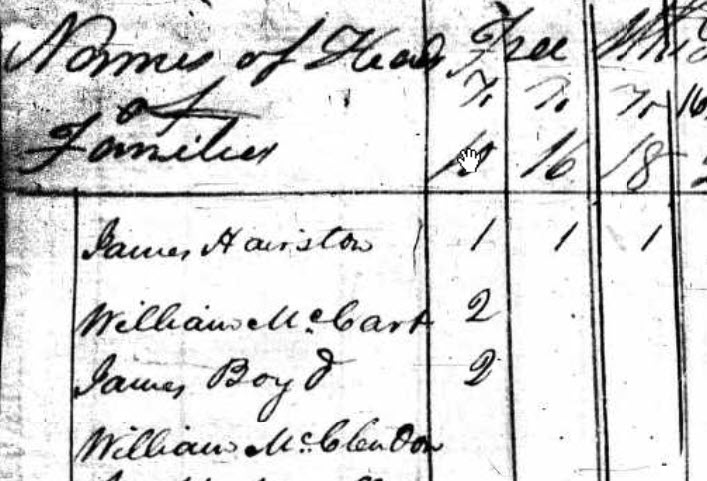 Names of Heads Free Whi
of To To To 16
Families 10 16 18 2
James Hairston 1 1 1
William McCart 2
James Boyd 2
William McClendon